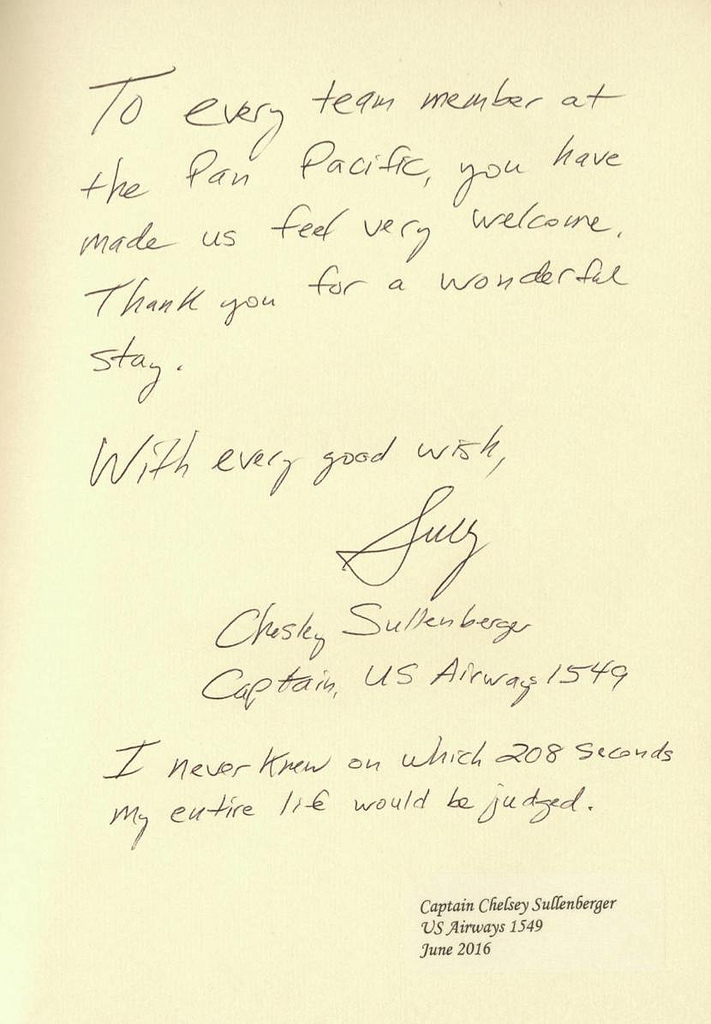 To every team member at
the Pan Pacific, you have
made us feel very welcome.
Thank you for a wonderful
stay.
With every good wish,
Sully
Chesley Sullenberger
Captain, US Airways 1549
I never knew on which 208 seconds
my entire life would be judged.
Captain Chelsey Sullenberger
US Airways 1549
June 2016